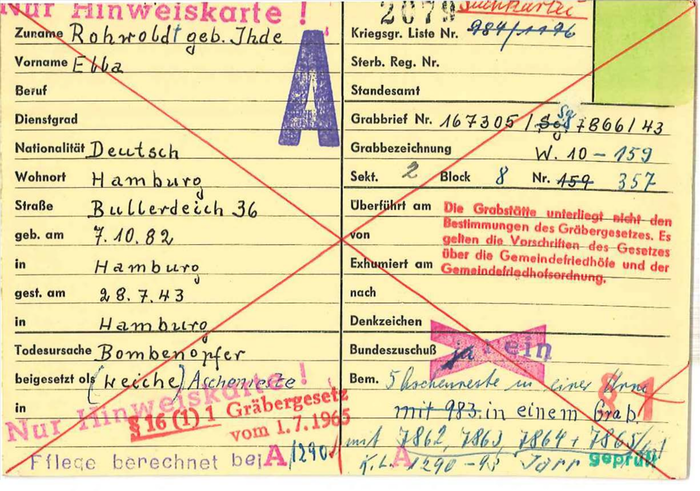 Nur Hinweiskarte !
Zuname Rohwoldt geb. Ihde
Vorname Ella
Beruf
Dienstgrad
Nationalität Deutsch
Wohnort Hamburg
Straße Bullerdeich 36
geb. am 7.10.82
in Hamburg
gest. am 28.7.43
in Hamburg
Todesursache Bombenopfer
beigesetzt als (weiche) Aschenreste
in
Nur Hinweiskarte !
§ 16 (1) 1 Gräbergesetz
vom 1.7.1965
Pflege berechnet bei A/1290
A
2079 Suchkartei
Kriegsgr. Liste Nr. 984/1196
Sterb. Reg. Nr.
Standesamt
Grabbrief Nr. 167305 / 7866/43
Grabbezeichnung W. 10 - 159
Sekt. 2 Block 8 Nr. 159 357
Überführt am
von
Exhumiert am
nach
Die Grabstätte unterliegt nicht den
Bestimmungen des Gräbergesetzes. Es
gelten die Vorschriften des Gesetzes
über die Gemeindefriedhöfe und der
Gemeindefriedhofsordnung.
Denkzeichen
Bundeszuschuß ja nein
Bem. 5 Aschenreste in einer Urne
§ 1
mit 983 in einem Grab.
mit 7862, 7863, 7864 + 7865
K.L. A 1290 - 95
geprüft